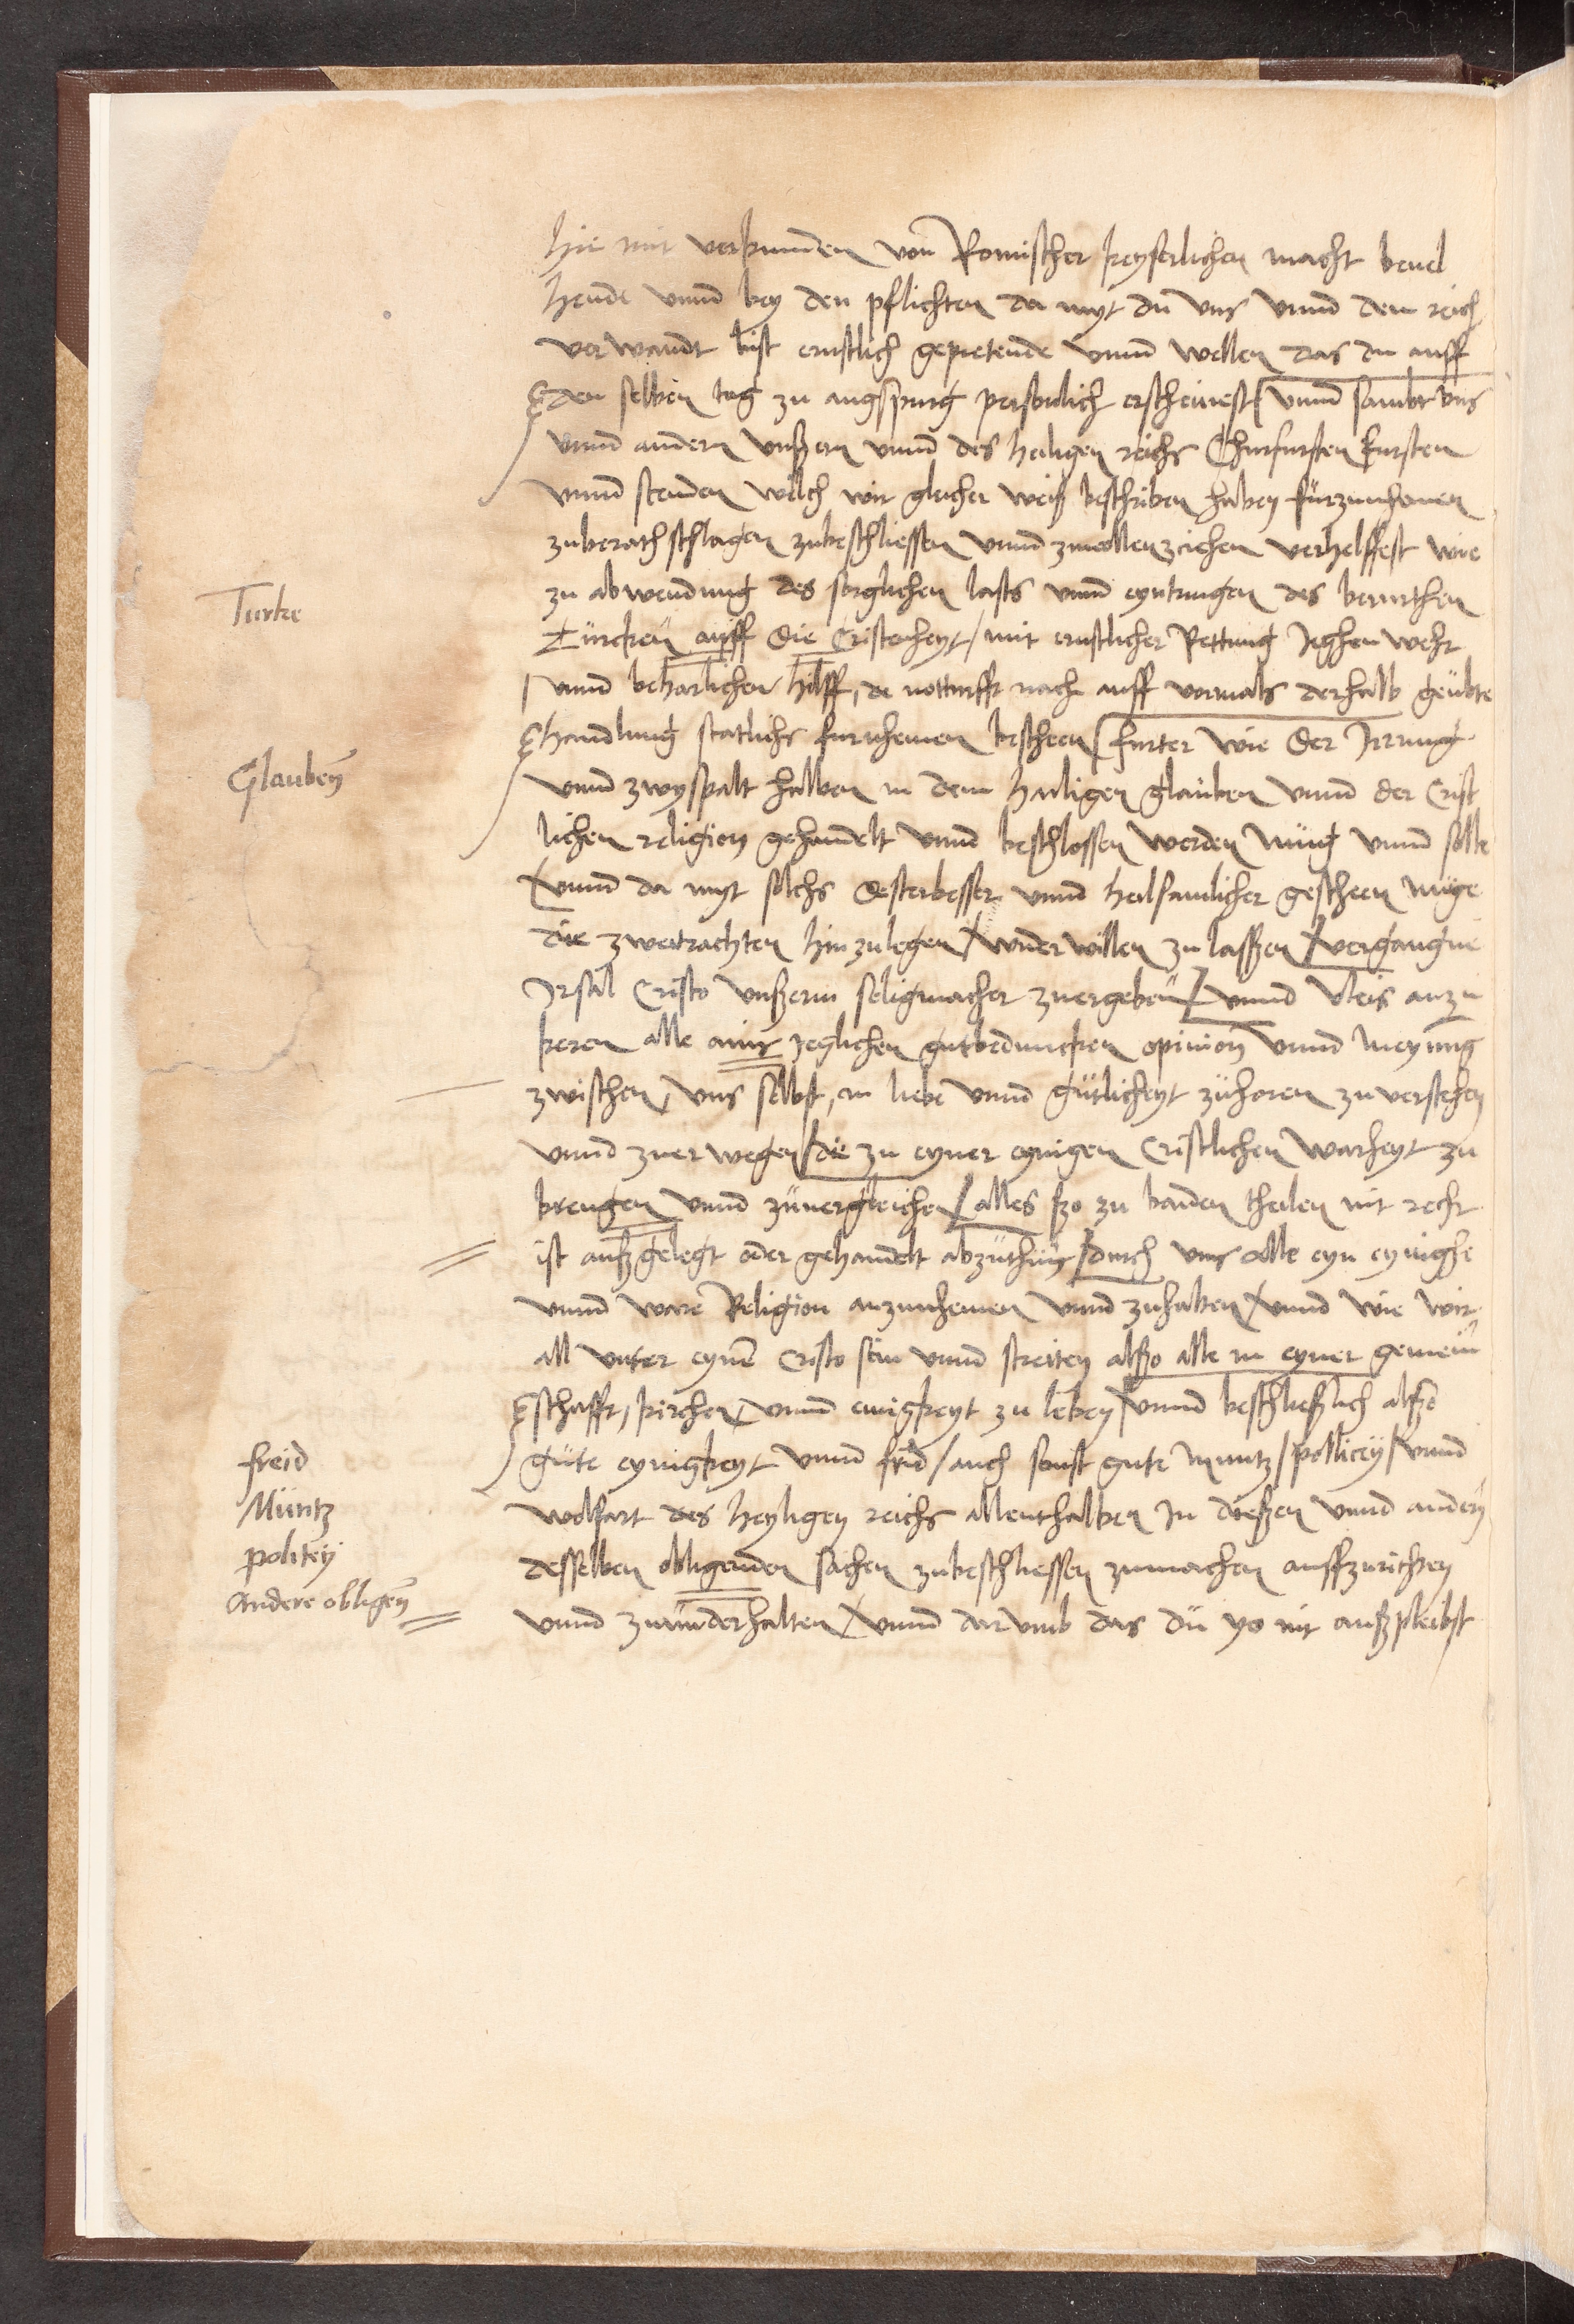 hie mit verkunden von Romischer keyserlichen macht bevel
hende vnnd bey den pflichten da myt du vns vnnd dem reich
verwandt bist ernstlich gepietende vnnd wellen das du auff
den selben tag zu augspurg personlich erscheinest / vnnd sambt vns
vnnd andern vnßern vnnd des heiligen reichs Churfursten Fursten
vnnd stenden welch wir gleicher weiß beschriben haben fürzunhemen
zuberathschlagen zubeschliessen vnnd zuuollenziehen verhelffest wie
zu abwendung des sorglichen lasts vnnd eyntringen des berurthen
Turke
Türcken auff die Cristenheyt / mit ernstlicher Rettung Jeghen wehr
vnnd beharlicher hilff, de notturfft nach auff vormals derhalb geübte
handlung statlichs furnhemen bescheen / furter wie der Irrung
Glauben
vnnd zwyspalt halben in dem heiligen glauben vnnd der Crist
lichen religion gehandelt vnnd beschlossen werden mug vnnd solle
/ vnnd da myt solchs desterbesser vnnd heilsamlicher gescheen müge
die zweitrachten hin zulegen / widerwillen zu lassen / vergangne
Irsal Cristo vnßerm seligmacher zuergeben / vnnd vleis anzu
keren alle ains jeglichen gutbeduncken opinion vnnd meynung
zwischen vns selbst, in liebe vnnd gütlicheyt zuhoren zu verstehen
vnnd zuerwegen / die zu eyner eynigen Cristlichen warheyt zu
brengen vnnd züuergleichen / alles ßo zu baiden theilen nit recht
ist außgelegt oder gehandelt abzuthun / durch vns alle eyn eynighe
vnnd ware Religion anzunhemen vnnd zuhalten / vnnd wie wir
all vnter eynē Cristo sein vnnd streiten alßo alle in eyner gemein
schafft, kirchen vnnd einigkeyt zu leben / vnnd beschließlich alßo
freid
güte eynigkeyt vnnd frid / auch sonst gute muntz / pollicey / vnnd
Müntz
wolfart des heyligen reichs allenthalben In dießen vnnd andern
politey
desselben obligenden sachen zubeschliessen zumachen auffzurichten
Andere obligen
vnnd zuunderhalten / vnnd darvmb das du yo nit außpleibst